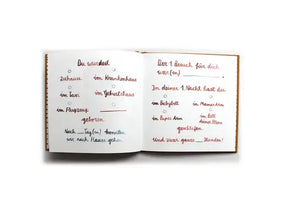 Du wurdest
Zuhause im Krankenhaus
im Taxi im Geburtshaus
im Flugzeug
geboren
Nach __ Tag(en) konnten
wir nach Hause gehen
Der 1. Besuch für dich
war(en)
In deiner 1. Nacht hast du
im Babybett in Mamas Arm
in Papas Arm im Bett
deiner Eltern
geschlafen
Und zwar ganze __ Stunden!